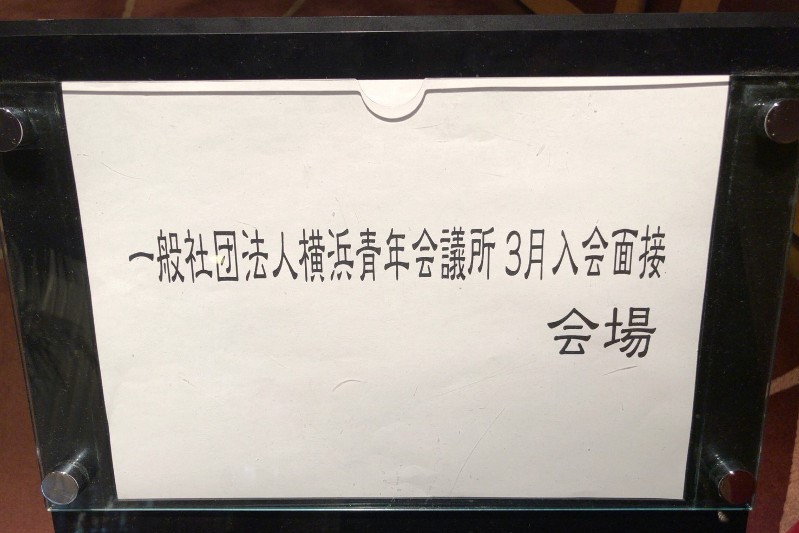 一般社団法人横浜青年会議所 3月入会面接
会場